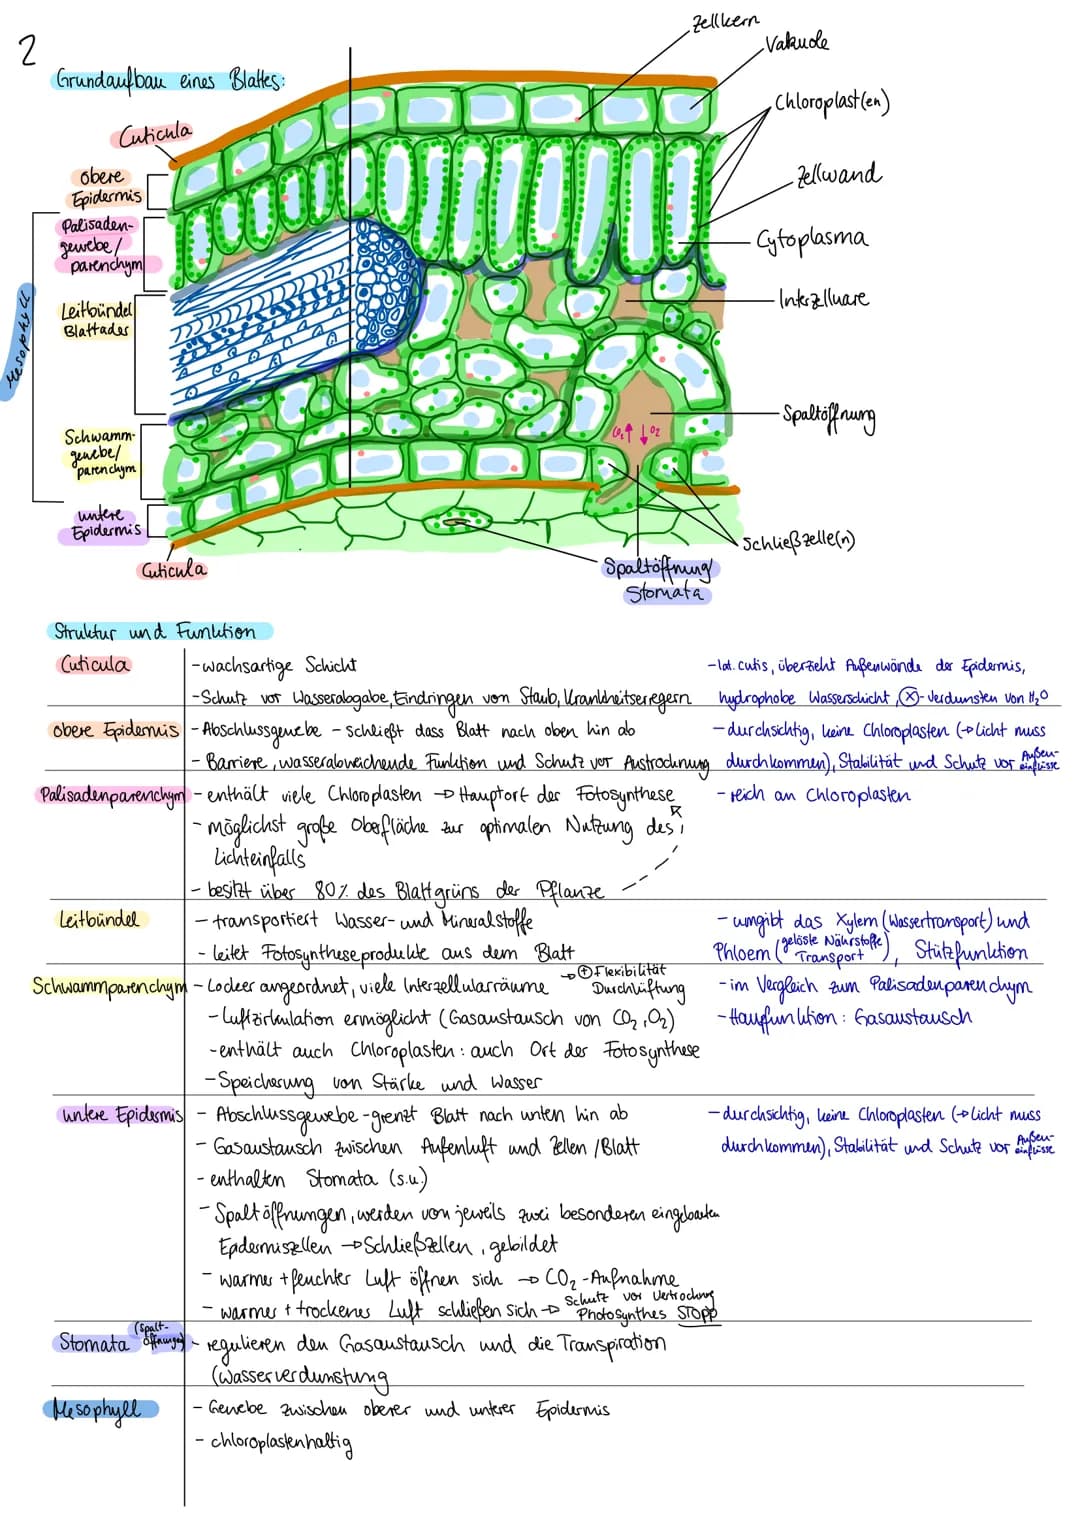 2
Grundaufbau eines Blattes:
Zellkern
Vakuole
Chloroplast(en)
Zellwand
Cytoplasma
Interzelluare
Spaltöffnung
Schließzelle(n)
Spaltöffnung
Stomata
Cuticula
obere
Epidermis
Palisaden-
gewebe/
parenchym
Leitbündel
Blattader
Mesophyll
Schwamm-
gewebe/
parenchym
untere
Epidermis
Cuticula
CO₂ O₂
Struktur und Funktion
Cuticula
-wachsartige Schicht
-Schutz vor Wasserabgabe, Eindringen von Staub, Krankheitserregern
-lat. cutis, überzieht Außenwände der Epidermis,
hydrophobe Wasserschicht, ⓧ-Verdunsten von H₂O
obere Epidermis
-Abschlussgewebe - schließt dass Blatt nach oben hin ab
- Barriere, wasserabweichende Funktion und Schutz vor Austrocknung
-durchsichtig, keine Chloroplasten (→Licht muss
durchkommen), Stabilität und Schutz vor Außen-
einflüsse
Palisadenparenchym
- enthält viele Chloroplasten → Hauptort der Fotosynthese
- möglichst große Oberfläche zur optimalen Nutzung des
Lichteinfalls
- besitzt über 80% des Blattgrüns der Pflanze
- reich an Chloroplasten
Leitbündel
- transportiert Wasser- und Mineralstoffe
- leitet Fotosyntheseprodukte aus dem Blatt
- umgibt das Xylem (Wassertransport) und
Phloem (gelöste Nährstoffe
Transport), Stützfunktion
Schwammparenchym
- Locker angeordnet, viele Interzellularräume → ⊕ Flexibilität
Durchlüftung
- Luftzirkulation ermöglicht (Gasaustausch von CO₂, O₂)
-enthält auch Chloroplasten: auch Ort der Fotosynthese
-Speicherung von Stärke und Wasser
- im Vergleich zum Palisadenparenchym
- Haupfunktion: Gasaustausch
untere Epidermis
- Abschlussgewebe - grenzt Blatt nach unten hin ab
- Gasaustausch zwischen Außenluft und Zellen/Blatt
- enthalten Stomata (s.u.)
- Spaltöffnungen, werden von jeweils zwei besonderen eingebauten
Epidermiszellen → Schließzellen, gebildet
- warmer + feuchter Luft öffnen sich → CO₂-Aufnahme
- warmer + trockener Luft schließen sich → Schutz vor Vertrocknung
Photosynthes STOPP
-durchsichtig, keine Chloroplasten (→Licht muss
durchkommen), Stabilität und Schutz vor Außen-
einflüsse
Stomata (Spalt-
öffnungen)
- regulieren den Gasaustausch und die Transpiration
(Wasserverdunstung
Mesophyll
- Gewebe zwischen oberer und unterer Epidermis
- chloroplastenhaltig